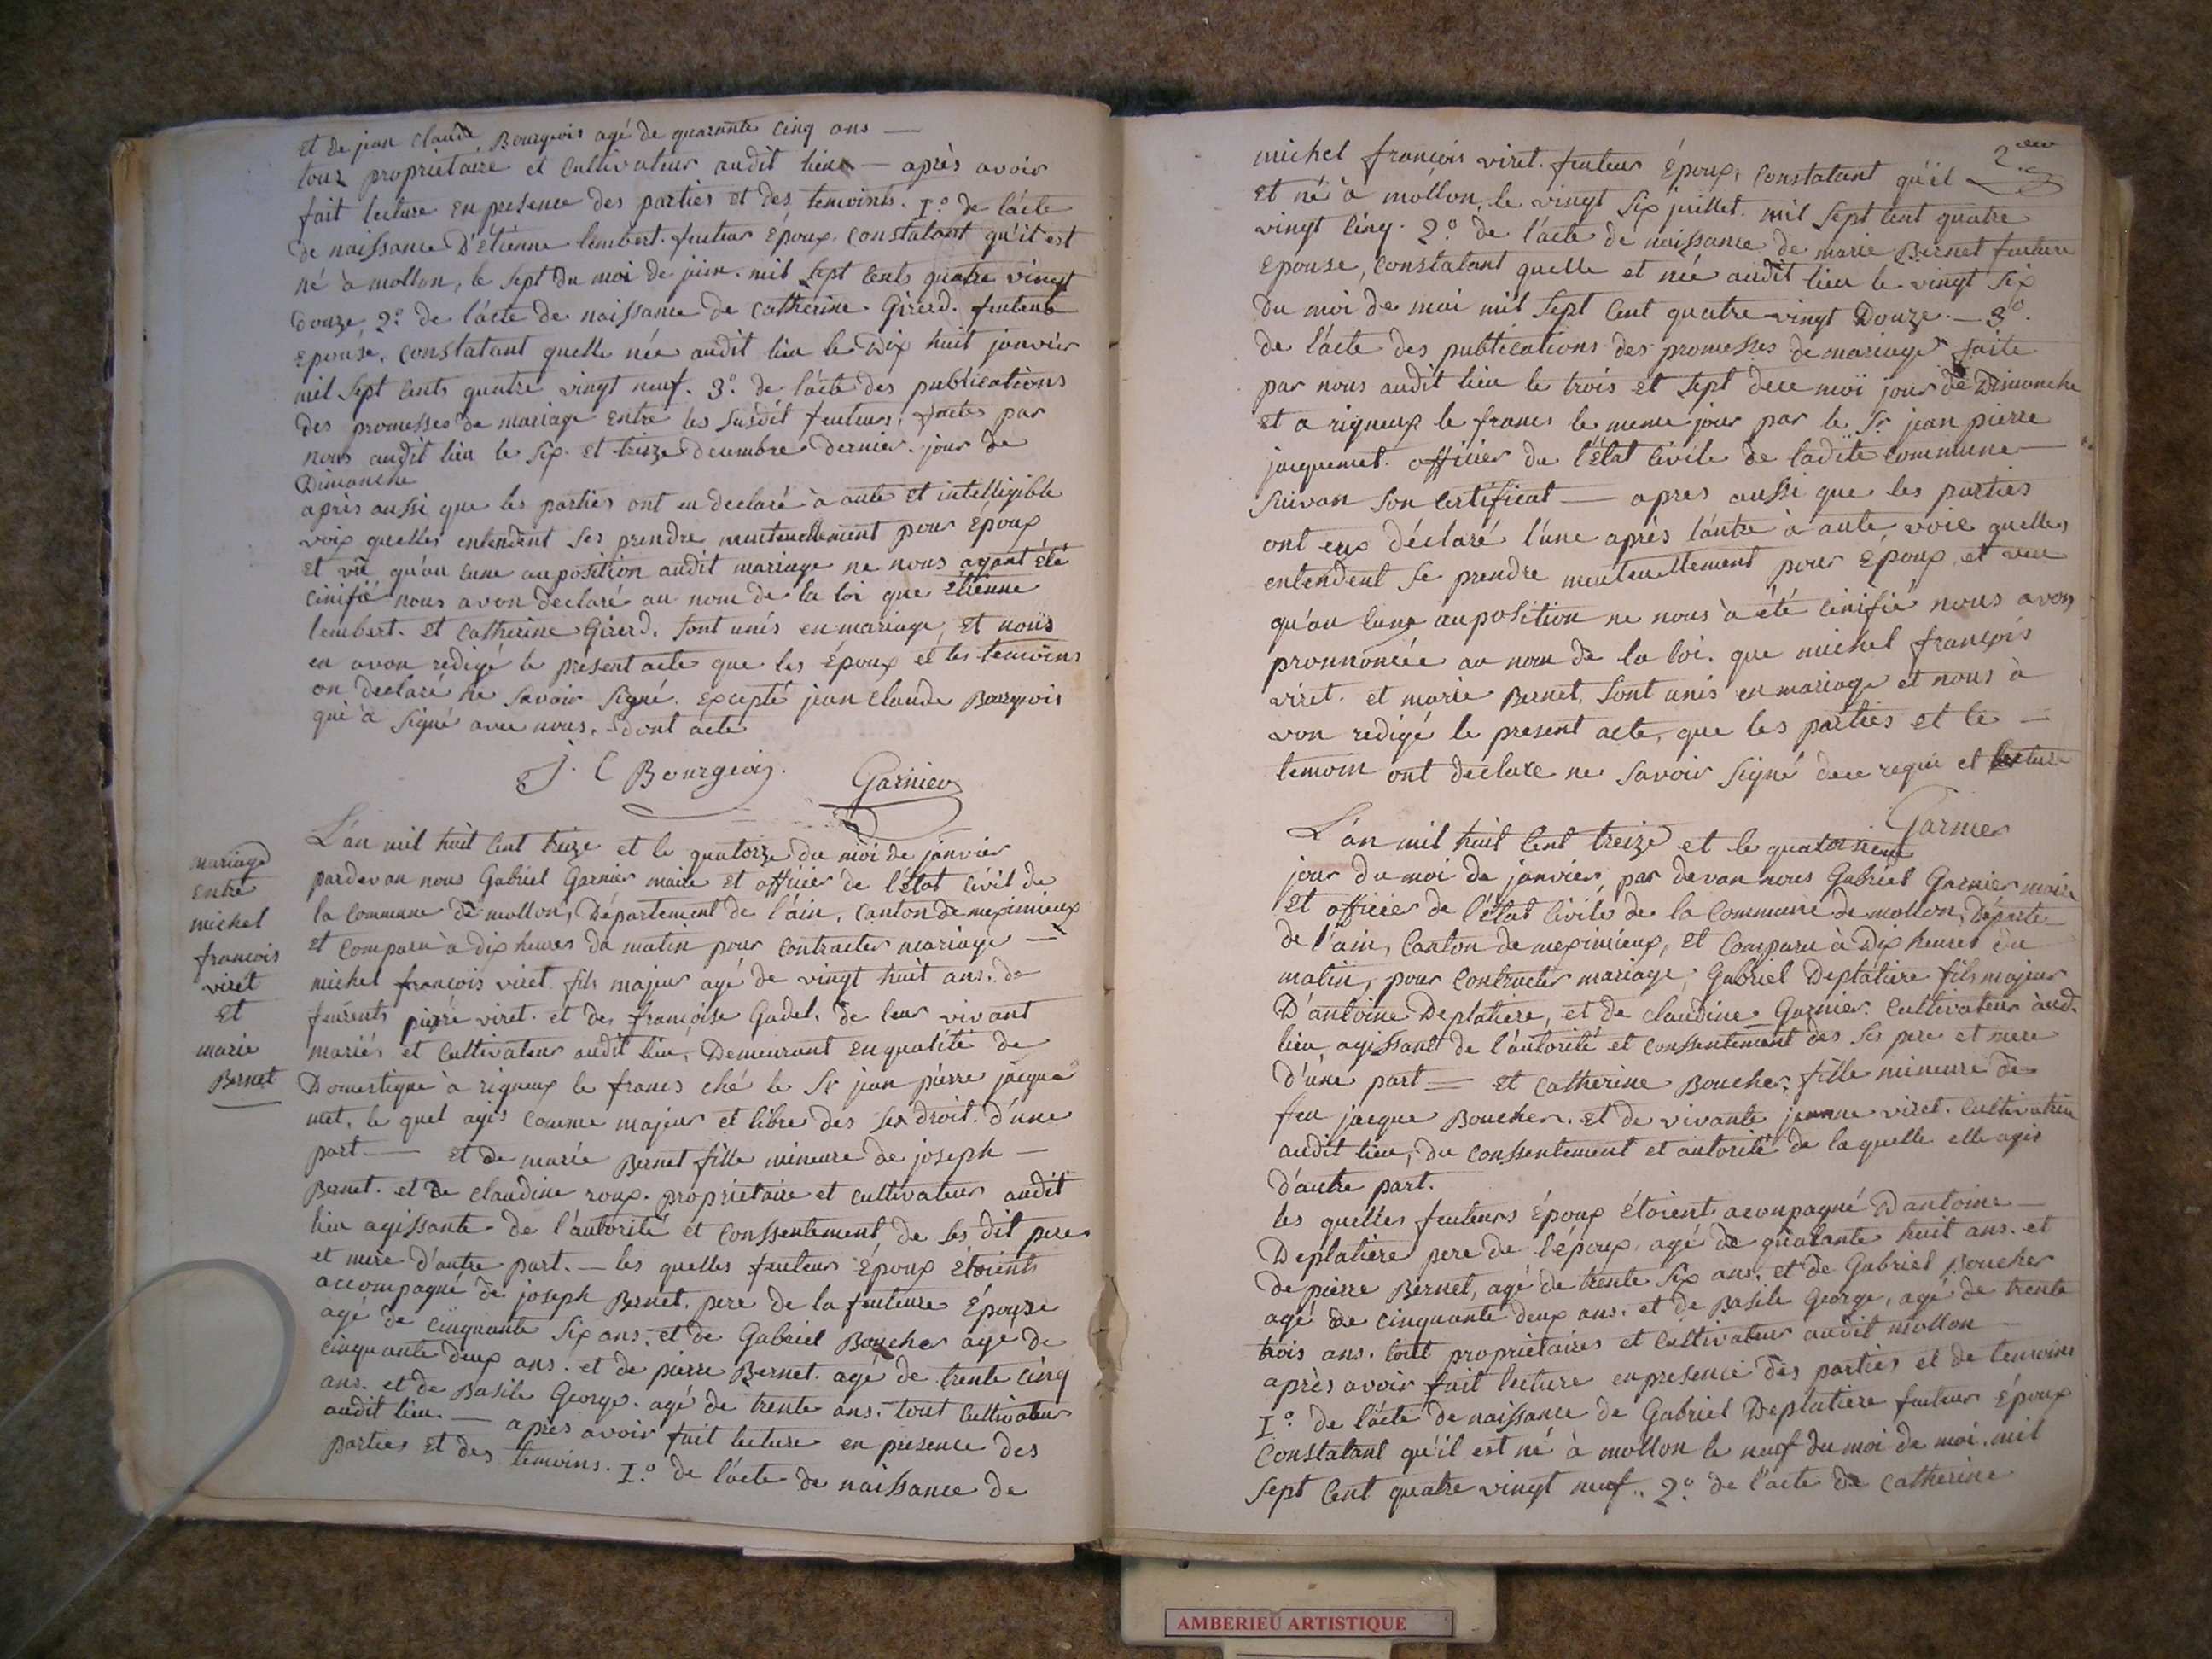 et de jean Claude Bourgeois agé de quarante cinq ans —
touz proprietaire et cultivateur audit lieu — après avoir
fait lecture en presence des parties et des temoints. 1.º de l'acte
de naissance D'étienne lembert. futeur époux, constatant qu'il est
né à mollon, le sept du moi de juin. mil sept cents quatre vingt
douze, 2.º de l'acte de naissance de Catherine Girerd. futeure
epouse, constatant quelle née audit lieu le dix huit janvier
mil sept cents quatre vingt neuf. 3.º de l'acte des publications
des promesses de mariage entre les susdit feuteurs, faites par
nous audit lieu le six et treize decembre dernier. jour de
Dimanche
après aussi que les parties ont eu declaré à aute et intelligible
voix quelles entendent ses prendre meuteuellement pour époux
et vû qu'au cune auposition audit mariage ne nous ayant été
cinifié nous avon declaré au nom de la loi que étienne
lembert. et Catherine Girerd. sont unis en mariage, et nous
en avon redigé le présent acte que les époux et les temoins
on declaré ne savoir signé. excepté jean claude Bourgeois
qui à signé avec nous. dont acte
J. C Bourgeois. Garnier
mariage
entre
michel
francois
viret
et
marie
Bernet
L'án mil huit cent treize et le quatorze du moi de janvier
pardevan nous Gabriel Garnier maire et officier de l'état civil de
la commune de mollon, Département de l'ain, canton de meximieux
et comparu à dix heures du matin pour contracter mariage —
michel françois viret fils majeur agé de vingt huit ans, de
feurents pierre viret. et de françoise Gadel. de leur vivant
mariés et cultivateur audit lieu, Demeurant en qualité de
Domestique à rigneux le francs ché le Sr jean pierre jacque
met, le quel agis comme majeur et libre des ses droit. d'une
part — et de marie Bernet fille mineure de joseph —
Bernet. et de claudine roux. proprietaire et cultivateur audit
lieu agissante de l'autorité et conssentement de ses dit pere
et mere d'autre part. — les quelles feuteur époux étoients
accompagné de joseph Bernet, pere de la feuteure épouze
agé de cinquante six ans, et de Gabriel Boucher agé de
cinquante deux ans. et de pierre Bernet. agé de trente cinq
ans. et de Basile George. agé de trente ans. tout cultivateur
audit lieu. — apres avoir fait lecture en presence des
parties et des temoins. 1.º de l'acte de naissance de
2.eme
michel françois viret. feuteur époux, constatant qu'il
et né à mollon, le vingt six juillet. mil sept cent quatre
vingt cinq. 2.º de l'acte de naissance de marie Bernet feuture
epouse, constatant quelle et née audit lieu le vingt six
du moi de mai mil sept cent quatre vingt Douze. — 3.º
de l'acte des publications des promesses de mariage faite
par nous audit lieu le trois et sept dece moi jour de Dimanche
et a rigneux le francs le meme jour par le Sr jean pierre
jacquemet. officier de l'état civile de ladite commune
suivan son certificat — apres aussi que les parties
ont eux déclaré l'une après l'autre à aute voie quelles
entendent se prendre meuteuellement pour époux, et veu
qu'au cune auposition ne nous à été cinifié nous avon
pronnoncée au nom de la loi. que michel françois
viret. et marie Bernet, sont unis en mariage et nous à
von redigé le present acte, que les parties et le —
temoin ont declare ne savoir signé dece requi et lecture
Garnier
L'án mil huit cent treize et le quatorsieme
jour du moi de janvier, par devan nous Gabriel Garnier maire
et officier de l'état civile de la commune de mollon, Départe
de l'ain, Canton de meximieux, et comparu à Dix heures du
matin, pour contracter mariage, Gabriel Deplatiere fils majeur
D'antoine Deplatiere, et de claudine Garnier. cultivateur aud.
lieu, agissant de l'autorité et conssentement des ses pere et mere
d'une part — et Catherine Boucher, fille mineure de
feu jacque Boucher. et de vivante jeanne viret. cultivatrice
audit lieu, du conssentement et autorité de laquelle elle agis
d'autre part.
les quelles feuteurs époux étoient acompagné D'antoine —
Deplatiere pere de l'époux, agé de quarante huit ans. et
de pierre Bernet, agé de trente six ans. et de Gabriel Boucher
agé de cinquante deux ans. et de Basile George, agé de trente
trois ans. tout proprietaires et cultivateur audit mollon —
après avoir fait lecture en presence des parties et de temoins
1.º de l'acte de naissance de Gabriel Deplatiere feuteur époux
constatant qu'il est né à mollon le neuf du moi de mai. mil
sept cent quatre vingt neuf.. 2.º de l'acte de Catherine
AMBERIEU ARTISTIQUE